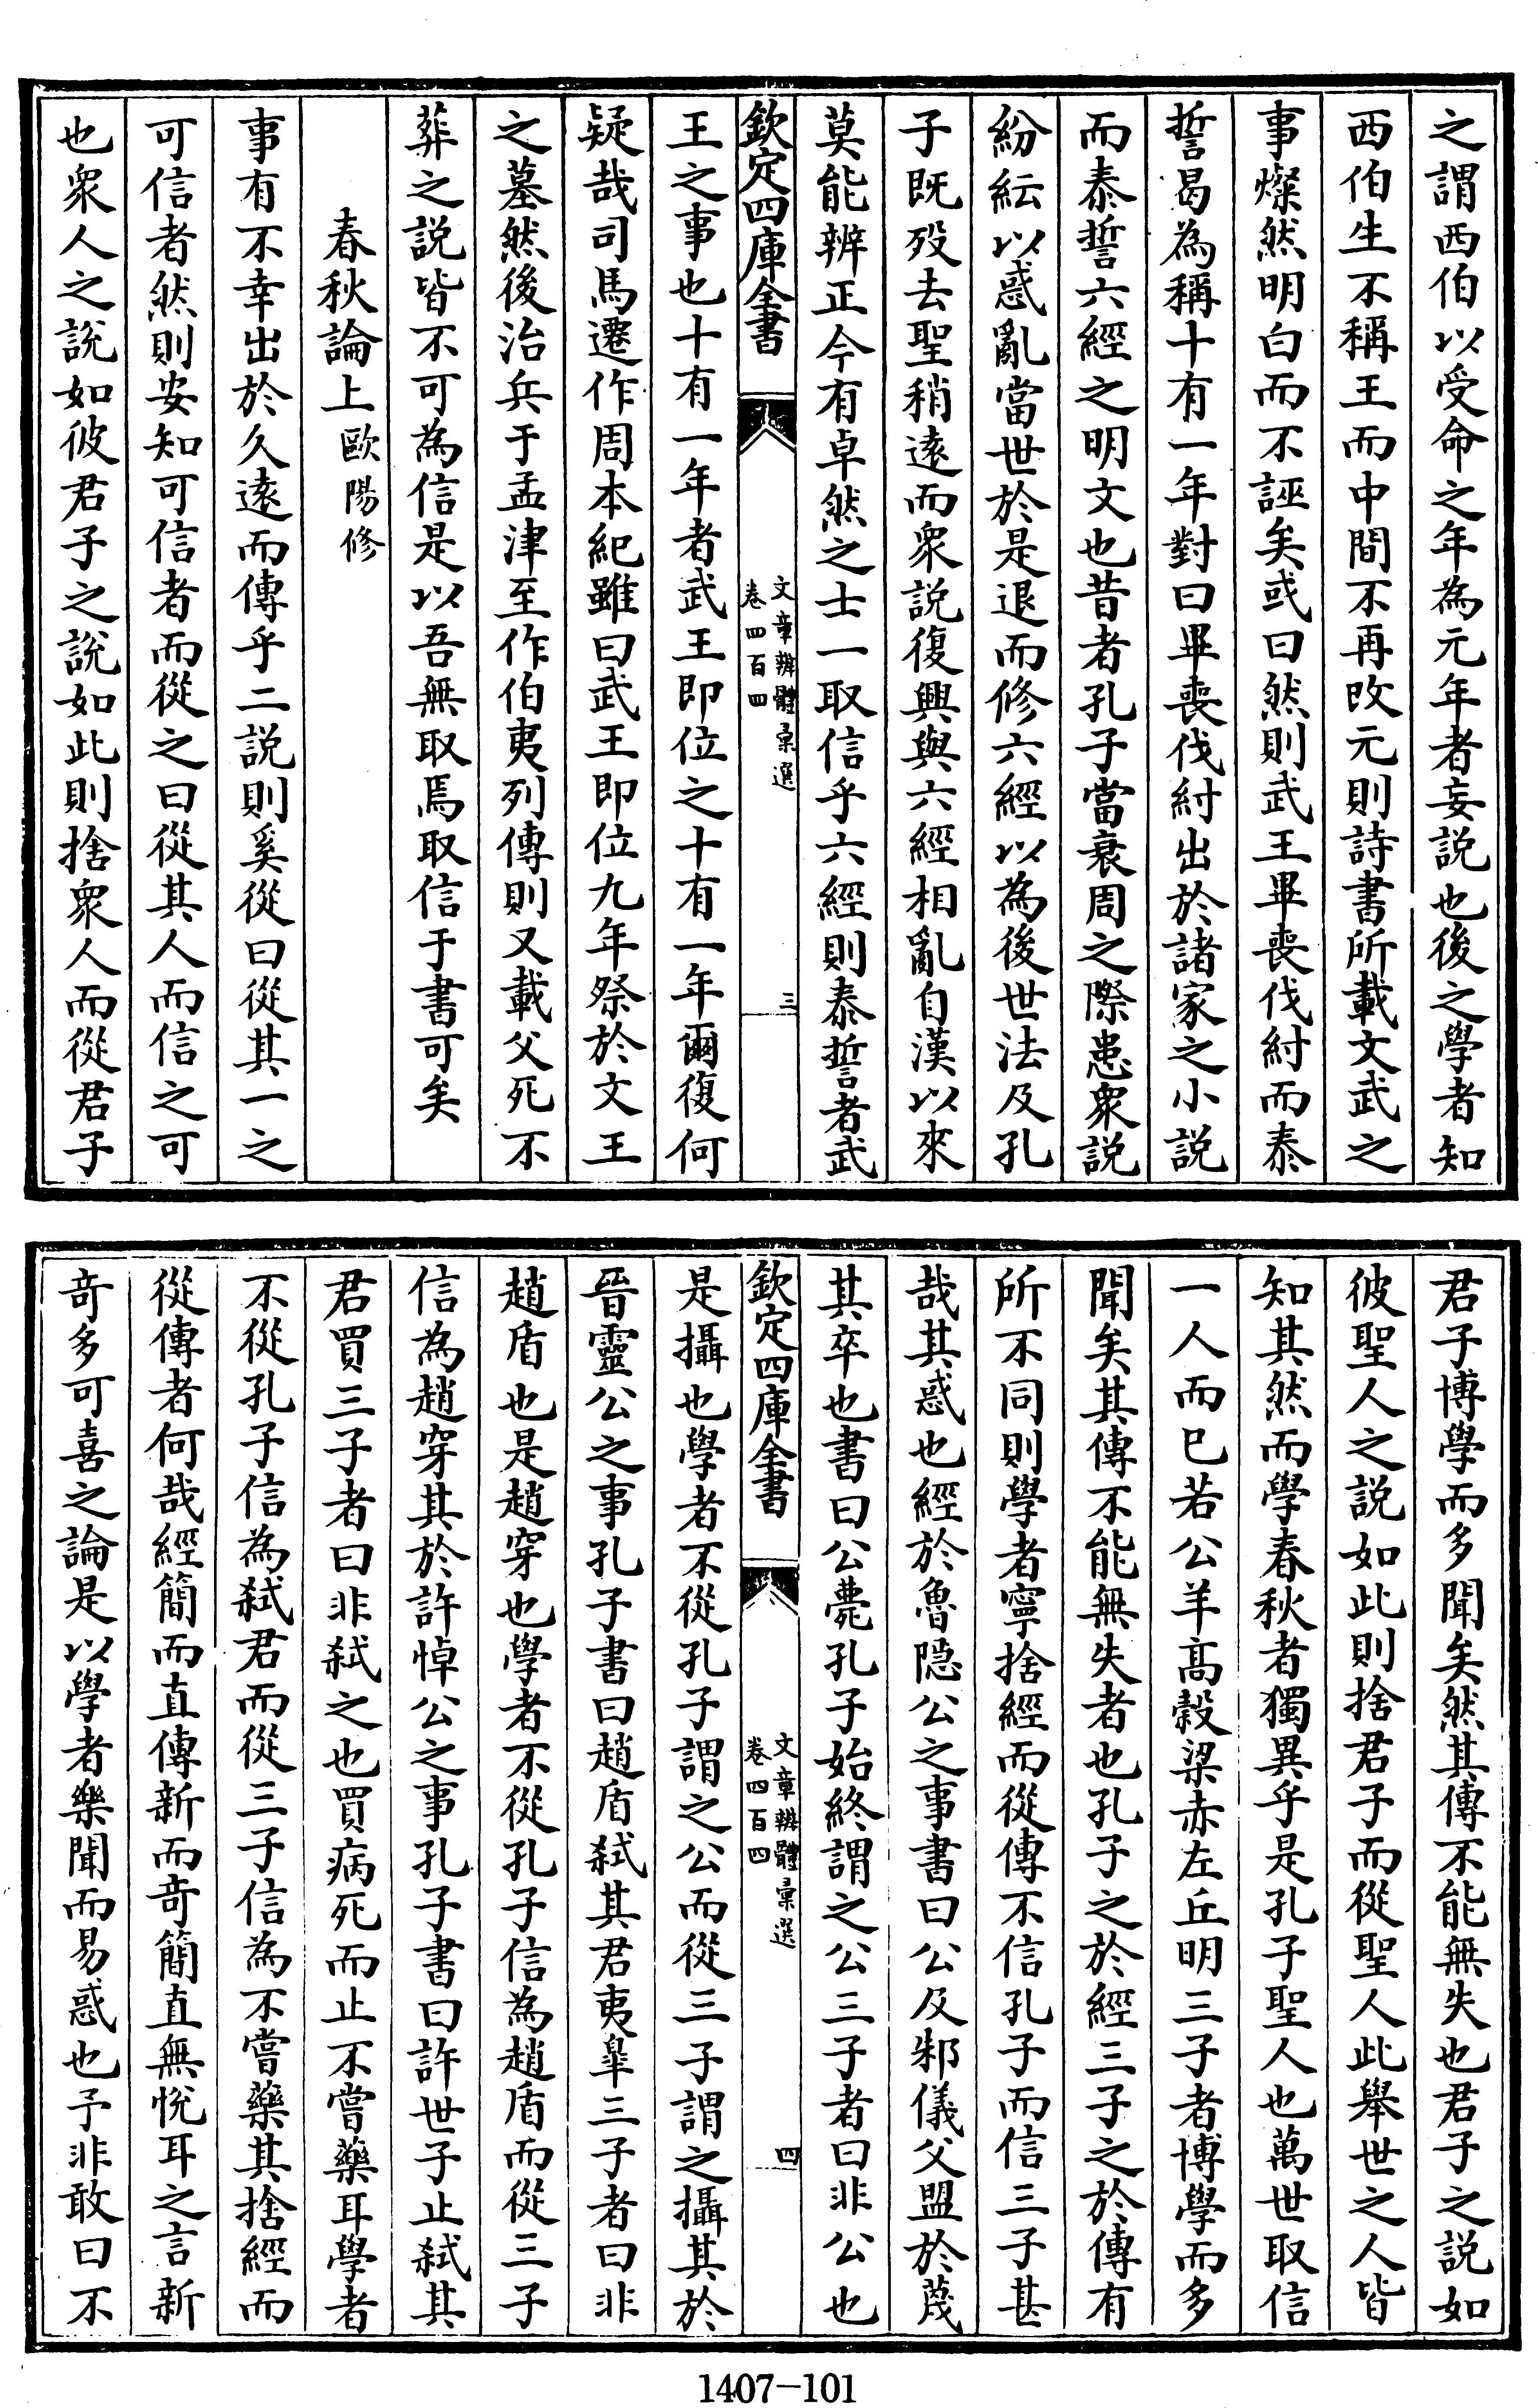 之謂西伯以受命之年為元年者妄説也後之學者知
西伯生不稱王而中間不再改元則詩書所載文武之
事燦然明白而不誣矣或曰然則武王畢喪伐紂而泰
誓曷為稱十有一年對曰畢喪伐紂出於諸家之小説
而泰誓六經之明文也昔者孔子當衰周之際患衆説
紛紜以惑亂當世於是退而修六經以為後世法及孔
子既歿去聖稍逺而衆説復興與六經相亂自漢以來
莫能辨正今有卓然之士一取信乎六經則泰誓者武
欽定四庫全書
文章辨體彙選
卷四百四
三
王之事也十有一年者武王即位之十有一年爾復何
疑哉司馬遷作周本紀雖曰武王即位九年祭於文王
之墓然後治兵于孟津至作伯夷列傳則又載父死不
葬之説皆不可為信是以吾無取焉取信于書可矣
春秋論上歐陽修
事有不幸出於久逺而傳乎二説則奚從曰從其一之
可信者然則安知可信者而從之曰從其人而信之可
也衆人之説如彼君子之説如此則捨衆人而從君子
君子博學而多聞矣然其傳不能無失也君子之説如
彼聖人之説如此則捨君子而從聖人此舉世之人皆
知其然而學春秋者獨異乎是孔子聖人也萬世取信
一人而已若公羊高穀梁赤左丘明三子者博學而多
聞矣其傳不能無失者也孔子之於經三子之於傳有
所不同則學者寧捨經而從傳不信孔子而信三子甚
哉其惑也經於魯隠公之事書曰公及邾儀父盟於蔑
其卒也書曰公薨孔子始終謂之公三子者曰非公也
欽定四庫全書
文章辨體彙選
卷四百四
四
是攝也學者不從孔子謂之公而從三子謂之攝其於
晉靈公之事孔子書曰趙盾弑其君夷皋三子者曰非
趙盾也是趙穿也學者不從孔子信為趙盾而從三子
信為趙穿其於許悼公之事孔子書曰許世子止弑其
君買三子者曰非弑之也買病死而止不嘗藥耳學者
不從孔子信為弑君而從三子信為不嘗藥其捨經而
從傳者何哉經簡而直傳新而竒簡直無悅耳之言新
竒多可喜之論是以學者樂聞而易惑也予非敢曰不
1407-101